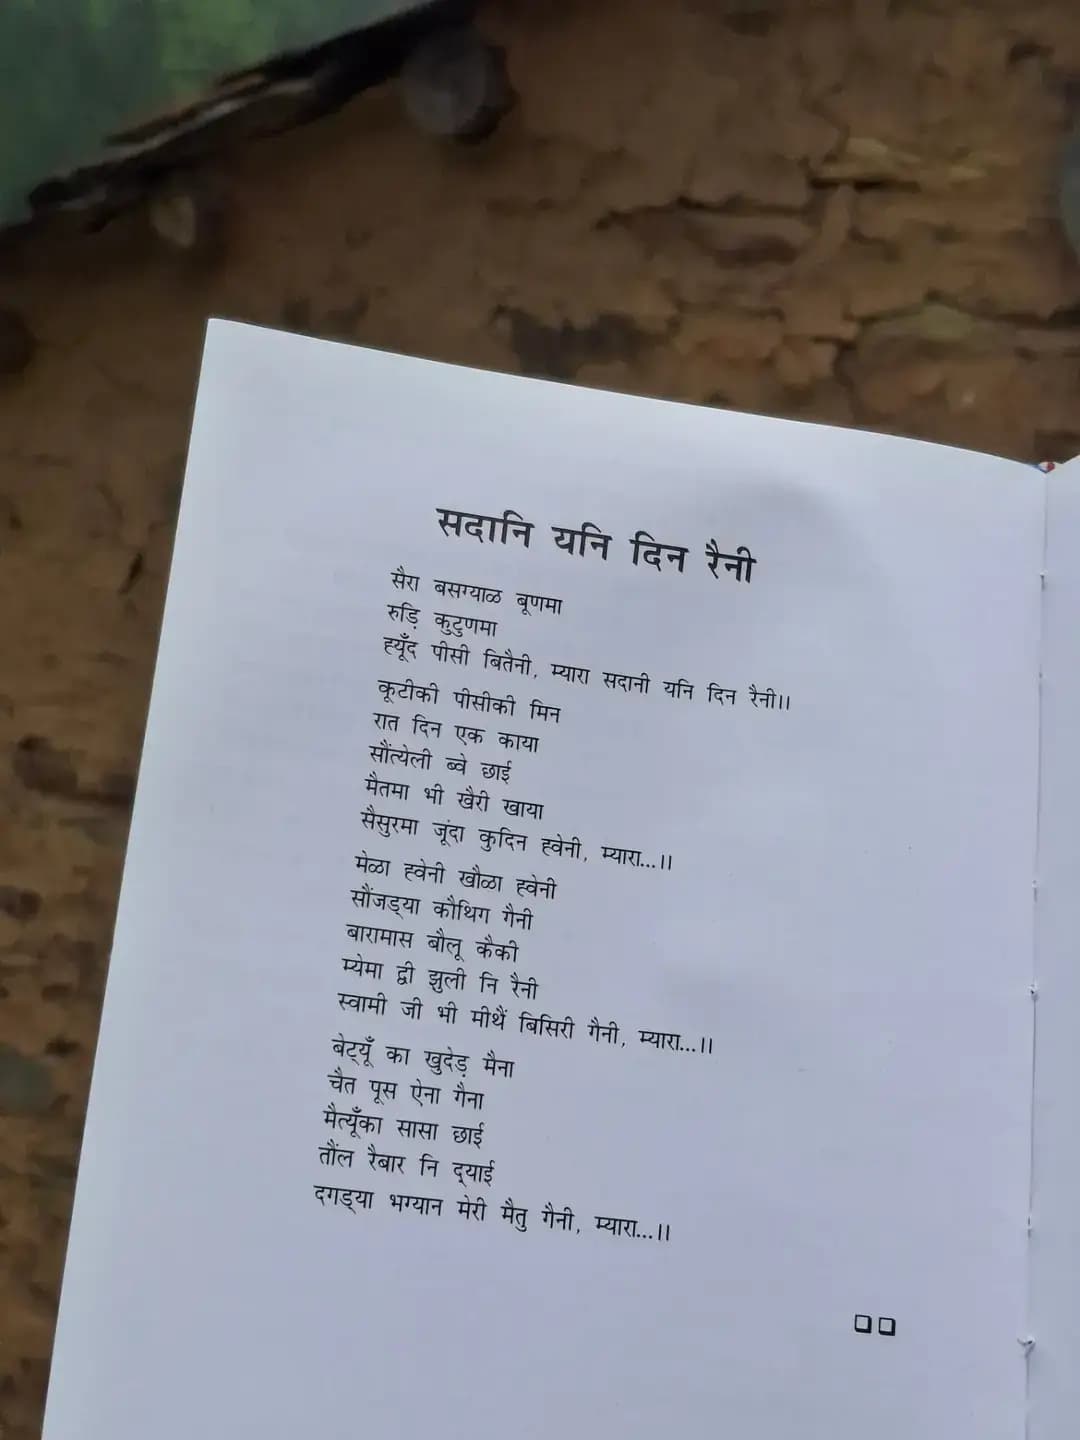 सदानि यनि दिन रैनी
सैरा बसग्याळ बूणमा
रुड़ि कुटुणमा
ह्यूँद पीसी बितैनी, म्यारा सदानी यनि दिन रैनी।।
कूटीकी पीसीकी मिन
रात दिन एक काया
सौंत्येली ब्वे छाई
मैतमा भी खैरी खाया
सैसुरमा जूंदा कुदिन ह्वेनी, म्यारा...।।
मेळा ह्वेनी खौळा ह्वेनी
सौंजड्या कौथिग गैनी
बारामास बौलू कैकी
म्येमा द्वी झुली नि रैनी
स्वामी जी भी मीथैं बिसिरी गैनी, म्यारा...।।
बेट्यूँ का खुदेड़ मैना
चैत पूस ऐना गैना
मैत्यूँका सासा छाई
तौंल रैबार नि द्याई
दगड्या भग्यान मेरी मैतु गैनी, म्यारा...।।